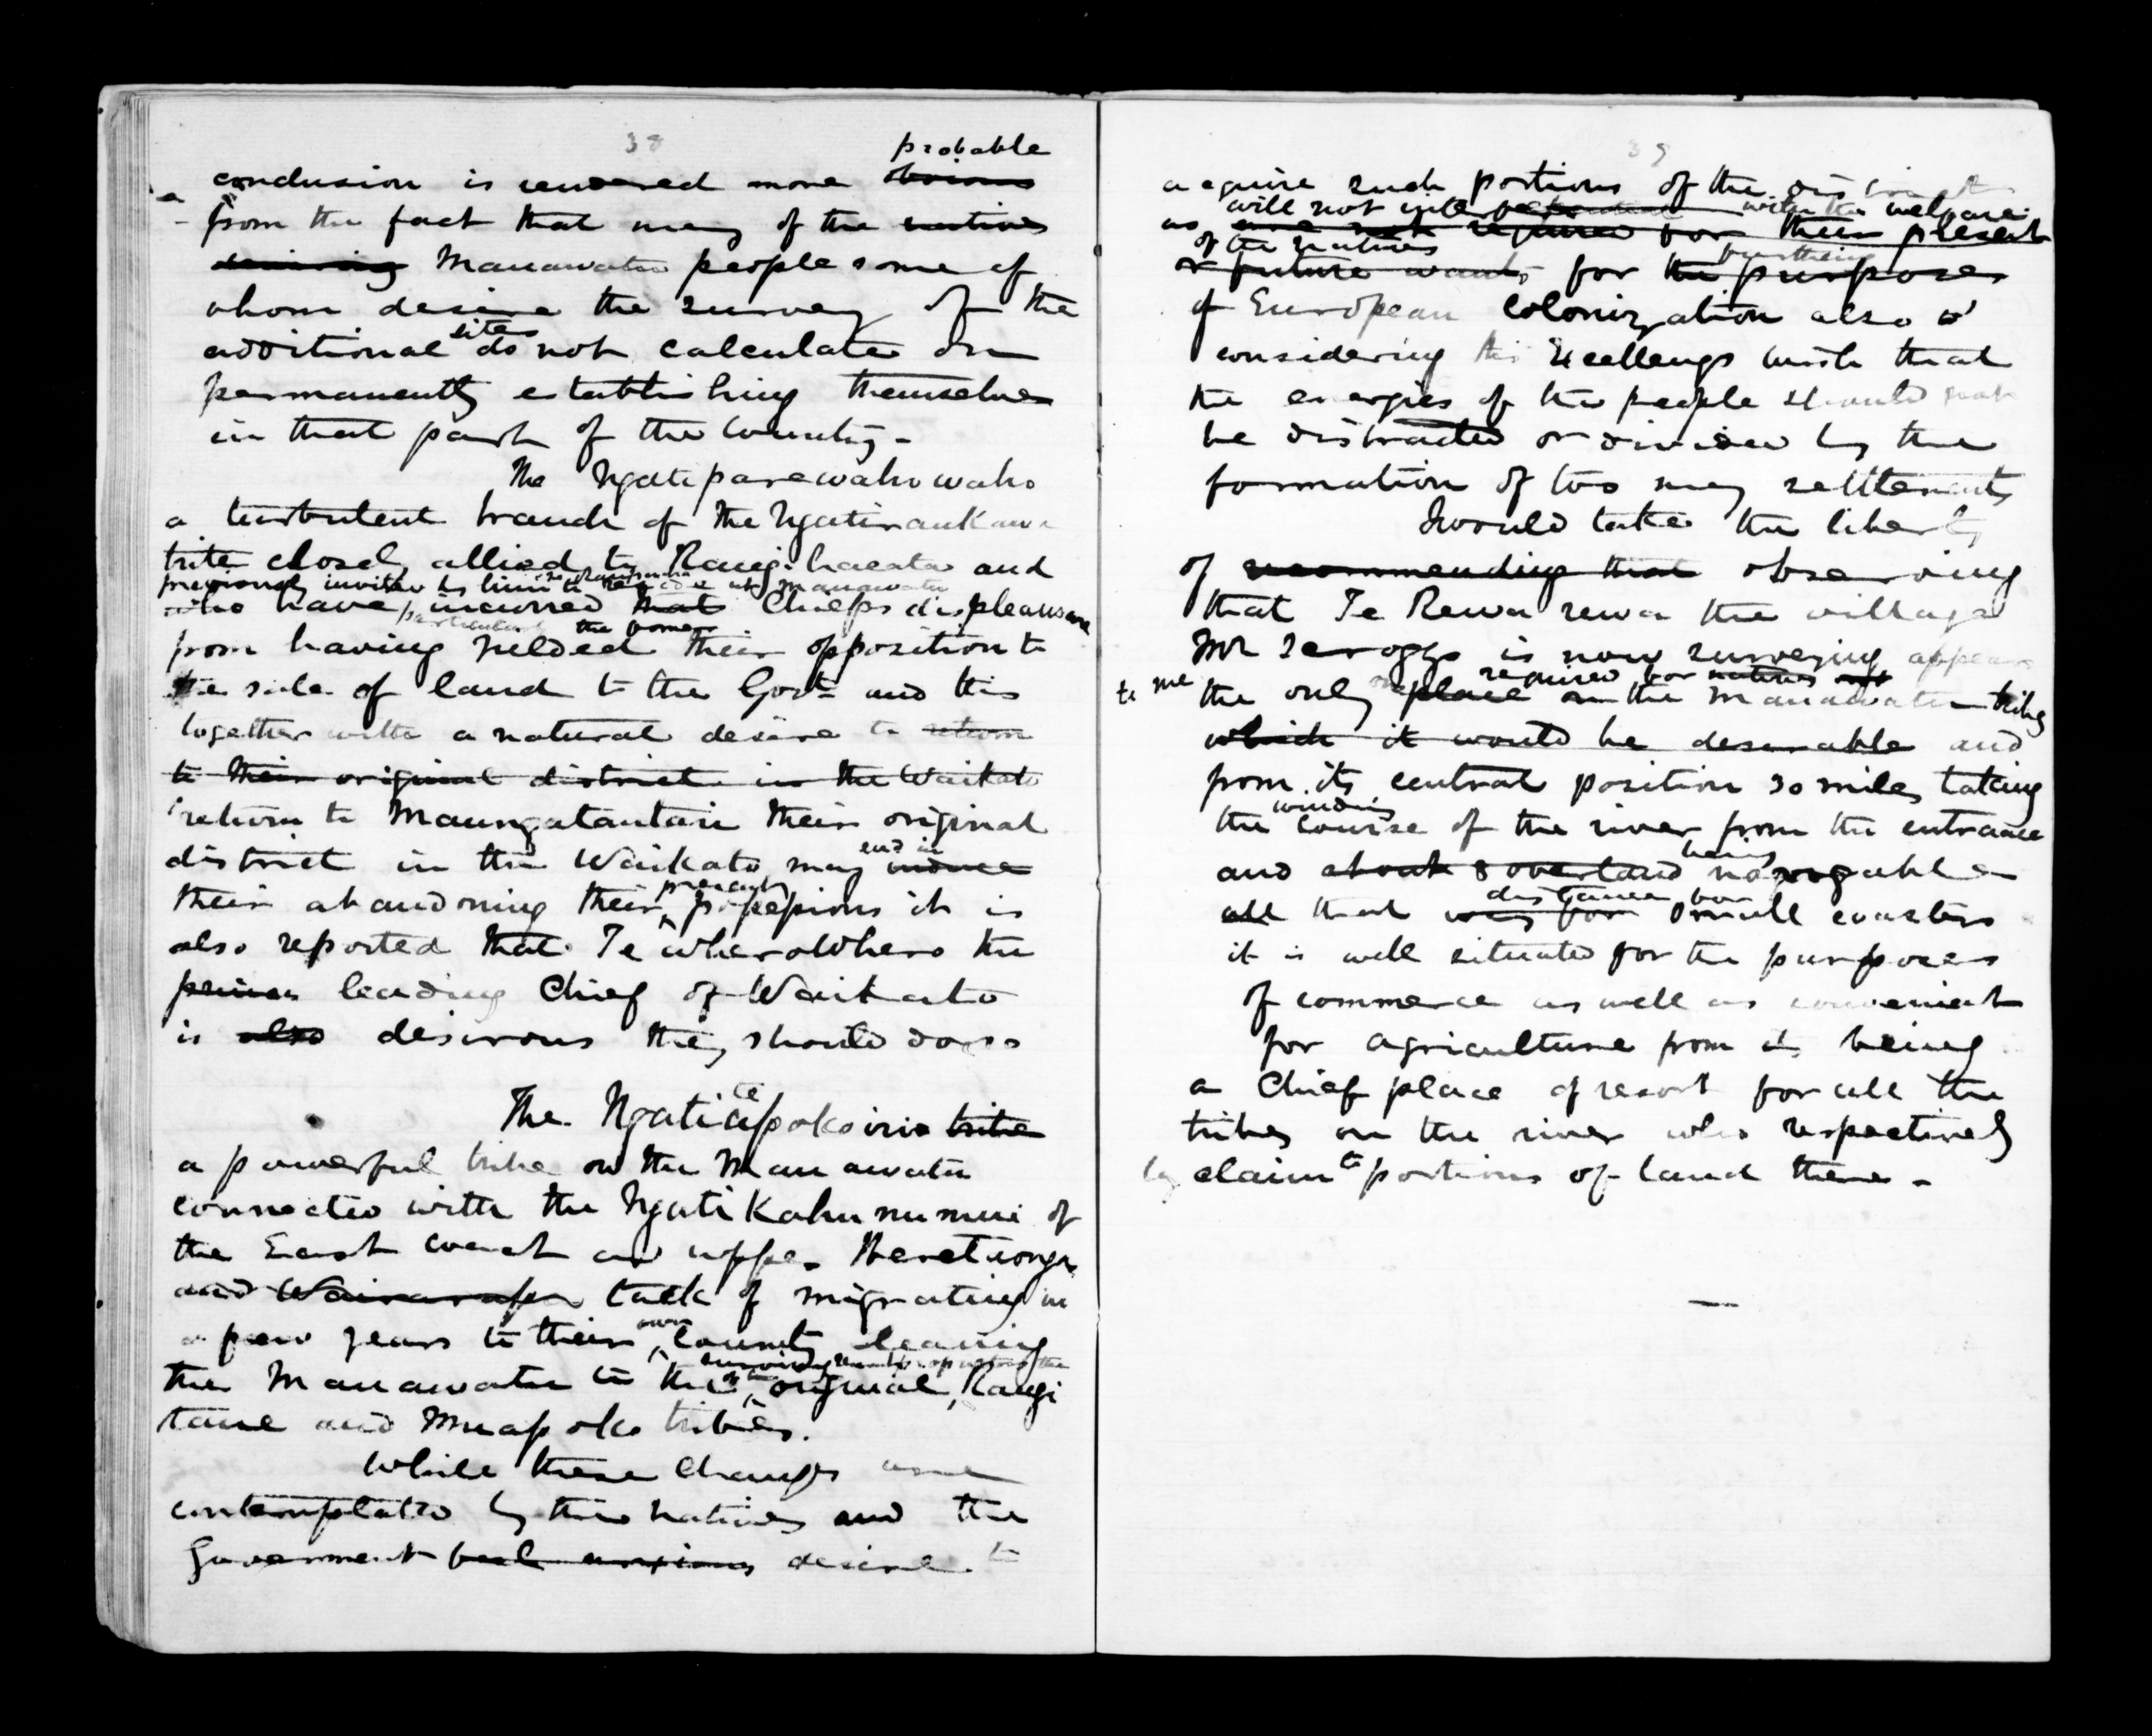 38
probable
conclusion is rendered more obvious
from the fact that many of the natives
desiring Manawatu people some of
whom desire the survey of the
sites
additional do not calculate on
permanently establishing themselves
in that part of the Country -
The Ngatiparewahowaho
a turbulent branch of the Ngatiraukawa
tribe closely allied to Rangihaeata and
previously invited by him to reside at Manawatu
who have incurred that Chiefs displeasure
particularly the former
from having yielded their opposition to
the sale of land to the Govt and this
together with a natural desire to return
to their original district in the Waikato
return to Maungatautari their original
end in
district in the Waikato may induce
present
their abandoning their possessions it is
also reported that Te Whero Whero the
leading Chief of Waikato
is also desirous they should do so
te
The Ngatiapokoirio tribe
a powerful tribe on the Manawatu
connected with the Ngati Kahununui of
the East coast and upper Heretuonga
and Wairarapa talk of migrating in
own
a few years to their Country leaving
surviving members of the
the Manawatu to the original, Rangi
tane and Muapoko tribes.
While these changes are
contemplated by the natives and the
Government desire to
39
acquire such portions of the district
will not interfere with the welfare
as are not required for their present
of the natives
or future wants for the purposes
of European Colonization also
considering His Excellency's wish that
the energies of the people should not
be distracted or divided by the
formation of too many settlements
I would take the liberty
of recommending that observing
that Te Rewa rewa the village
Mr Scroggs is now surveying appears
required for natives
to me the only place on the Manawatu tribes
which it would be desirable and
from its central position 30 miles taking
winding
the course of the river from the entrance
being
and about 8 overland navigable
distance for
all that way for small coasters
it is well situated for the purposes
of commerce as well as convenient
for agriculture from its being
a Chief place of resort for all the
tribes on the river who respectively
lay claim to portions of land there -